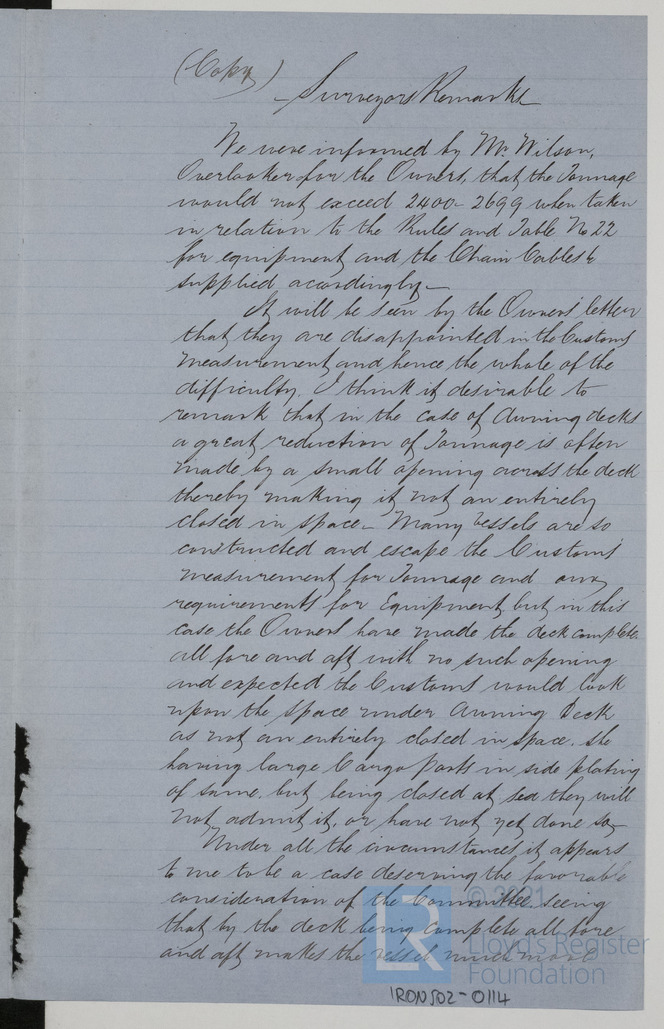 (Copy)
Surveyors Remarks
We were informed by Mr Wilson,
Overlooker for the Owners, that the Tonnage
would not exceed 2400 - 2699 when taken
in relation to the Rules and Table No 22
for equipment and the Chain Cables &
supplied accordingly—
It will be seen by the Owners' letter
that they are disappointed in the Customs
measurement and hence the whole of the
difficulty. I think it desirable to
remark that in the case of Awning decks
a great reduction of Tonnage is often
made by a small opening across the deck
thereby making it not an entirely
closed in space— Many vessels are so
constructed and escape the Customs
measurement for Tonnage and our
requirements for Equipment but in this
case the Owners have made the deck complete
all fore and aft with no such opening
and expected the Customs would look
upon the space under Awning Deck
as not an entirely closed in space. She
having large Cargo Ports in side plating
of same. but being closed at sea they will
not admit it, or have not yet done so—
Under all the circumstances it appears
to me to be a case deserving the favorable
consideration of the Committee. seeing
that by the deck being complete all fore
and aft makes the vessel much more
© 2021
LR
Lloyd's Register
Foundation
IRON502-0114